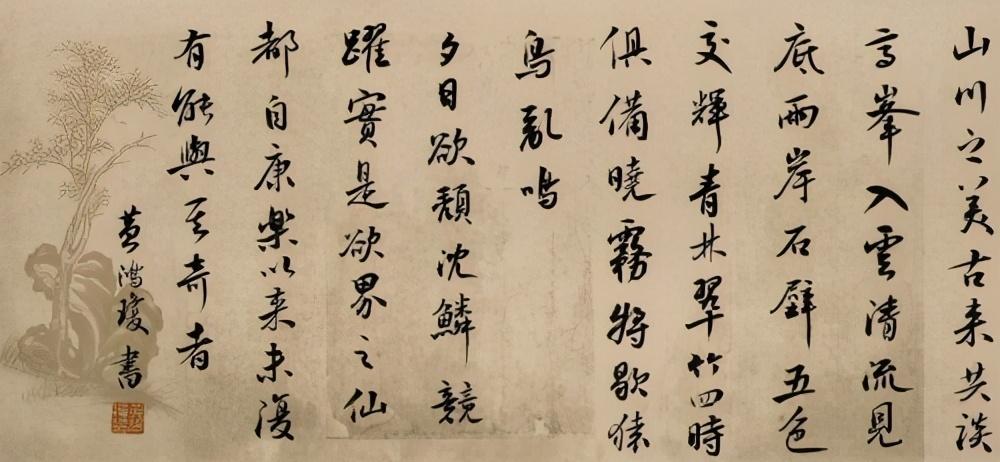 山川之美古来共談
高峯入雲清流見
底兩岸石壁五色
交輝青林翠竹四時
俱備曉霧將歇猿
鳥亂鳴
夕日欲頹沈鱗競
躍實是欲界之仙
都自康樂以来未復
有能與其奇者
黄鴻瓊書